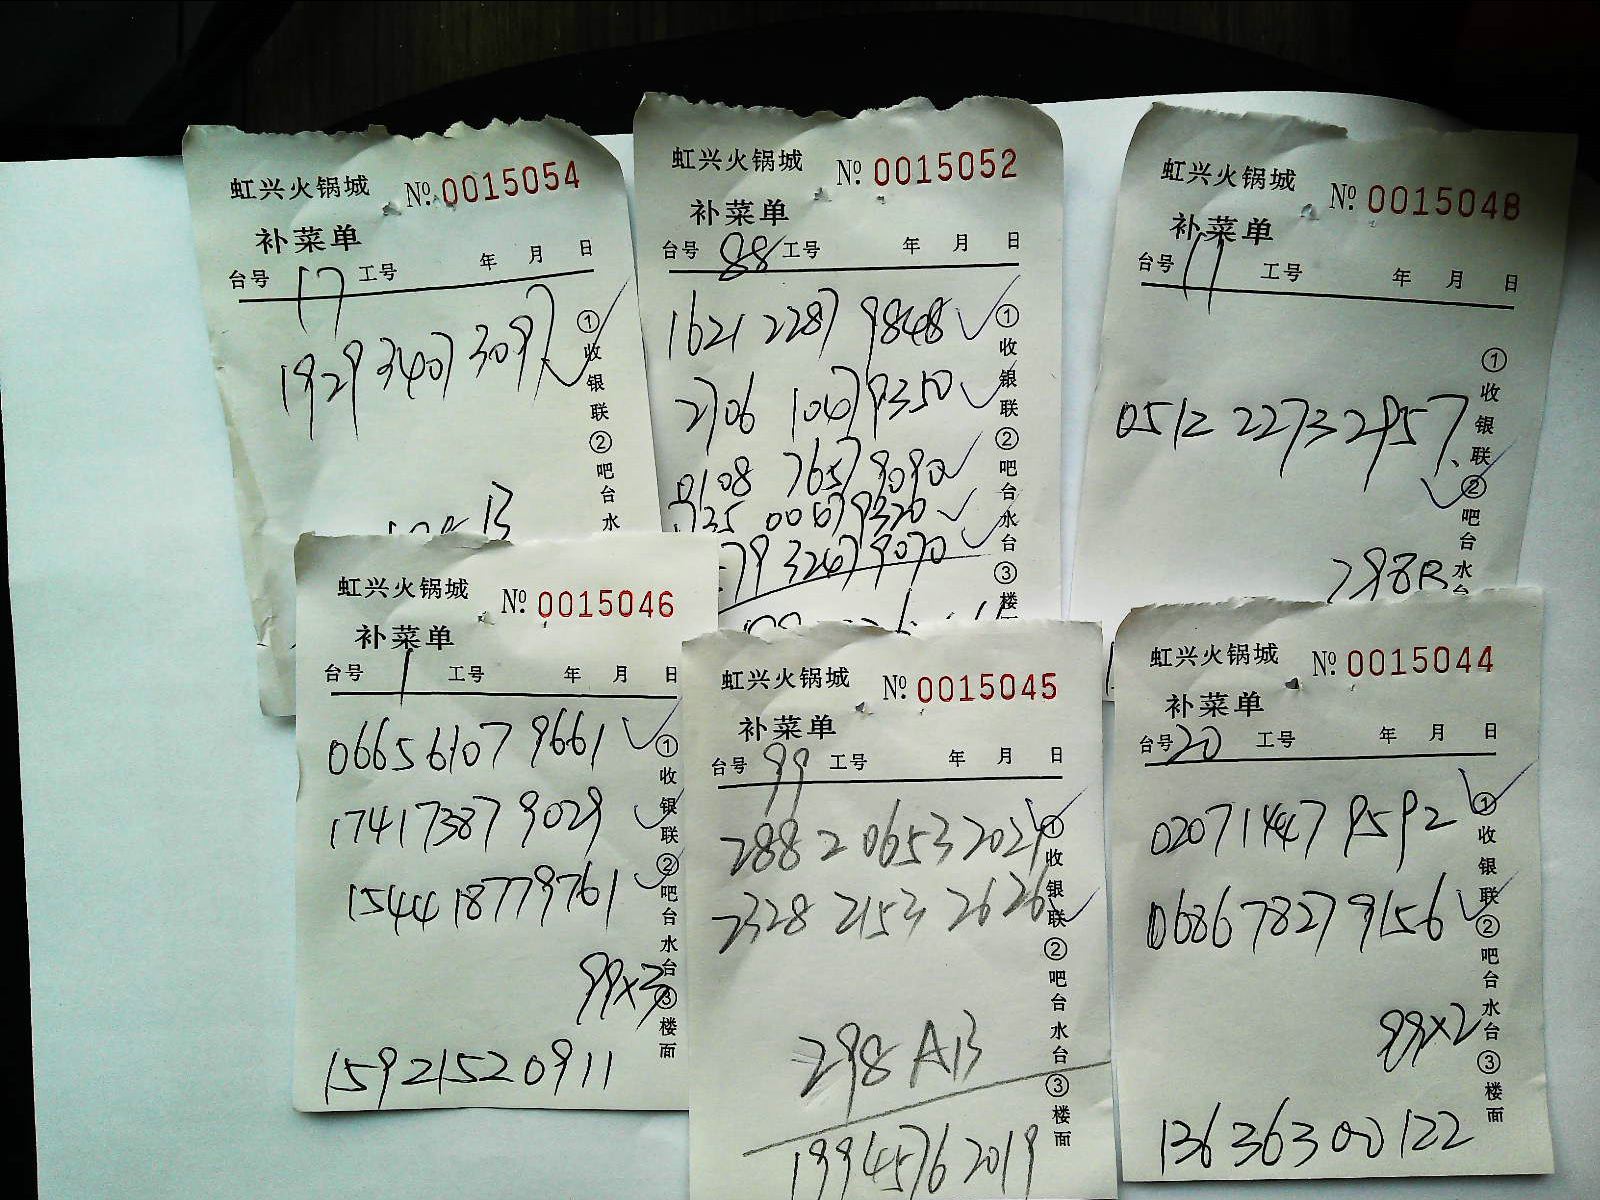 虹兴火锅城 № 0015054
补菜单
台号 17 工号 年 月 日
1929 3407 3097
①收银联②吧台水
虹兴火锅城 № 0015052
补菜单
台号 88 工号 年 月 日
1621 2287 9848
2706 1047 9350
0108 7657 9090
0067 9320
79 3247 9070
①收银联②吧台水台③楼
虹兴火锅城 № 0015048
补菜单
台号 17 工号 年 月 日
0512 2273 2957
298B
①收银联②吧台水台
虹兴火锅城 № 0015046
补菜单
台号 1 工号 年 月 日
0665 6107 9661
1741 7387 9029
1544 1877 9761
99×3
15921520911
①收银联②吧台水台③楼面
虹兴火锅城 № 0015045
补菜单
台号 99 工号 年 月 日
2882 0653 2029
2328 2153 2626
298 AB
19945762019
①收银联②吧台水台③楼面
虹兴火锅城 № 0015044
补菜单
台号 20 工号 年 月 日
0207 1447 9592
0686 7827 9156
99×2
13636300122
①收银联②吧台水台③楼面